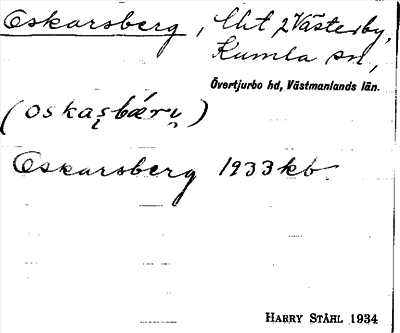 Oskarsberg, lht 2 Västerby,
Kumla sn,
Övertjurbo hd, Västmanlands län.
(oskaṣbærụ)
Oskarsberg 1933 kb
HARRY STÅHL 1934